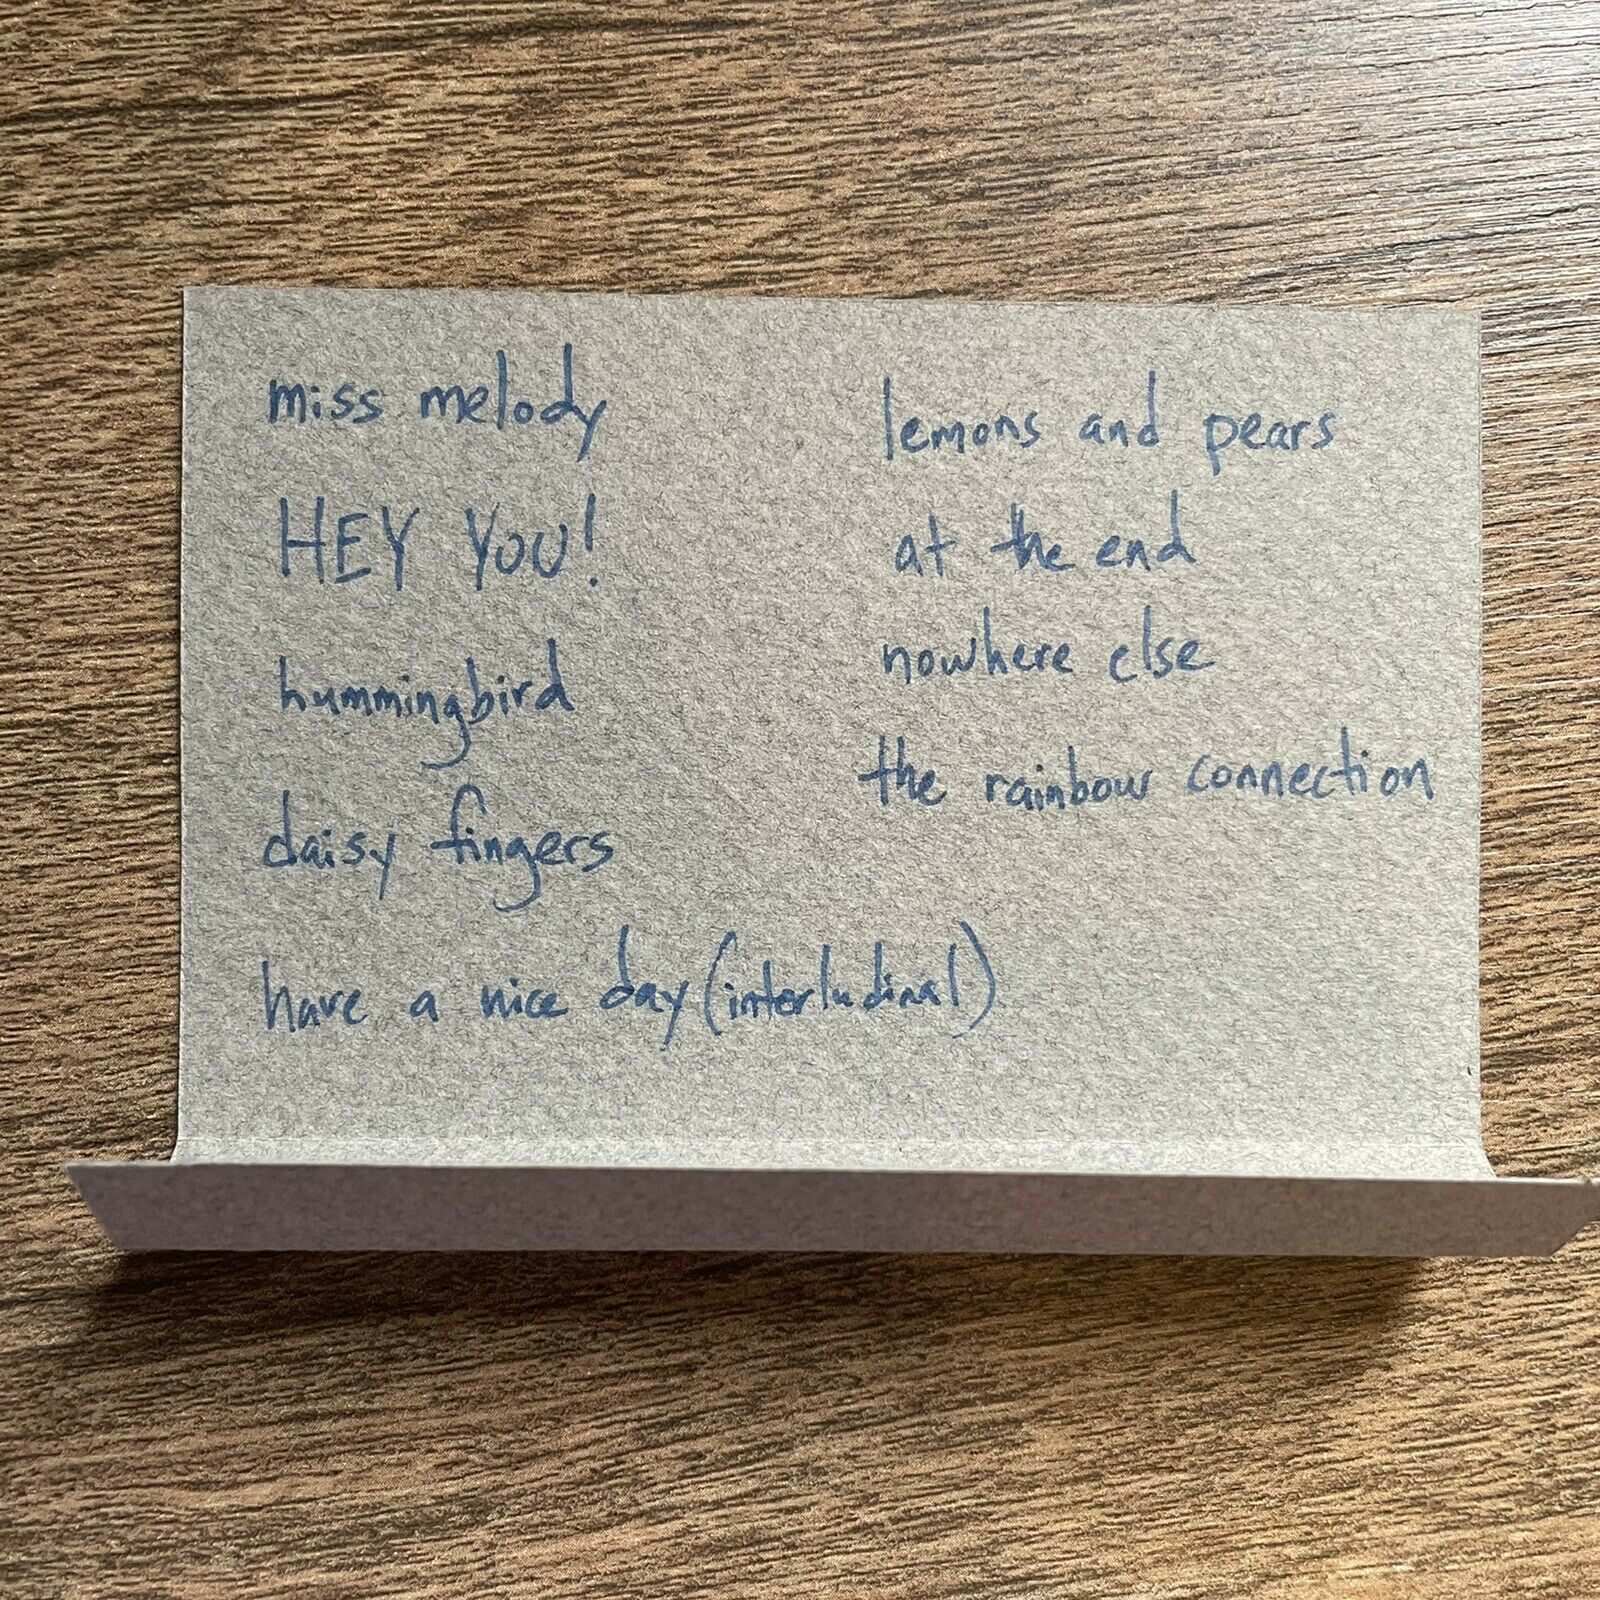 miss melody
HEY YOU!
hummingbird
daisy fingers
have a nice day (interludinal)
lemons and pears
at the end
nowhere else
the rainbow connection